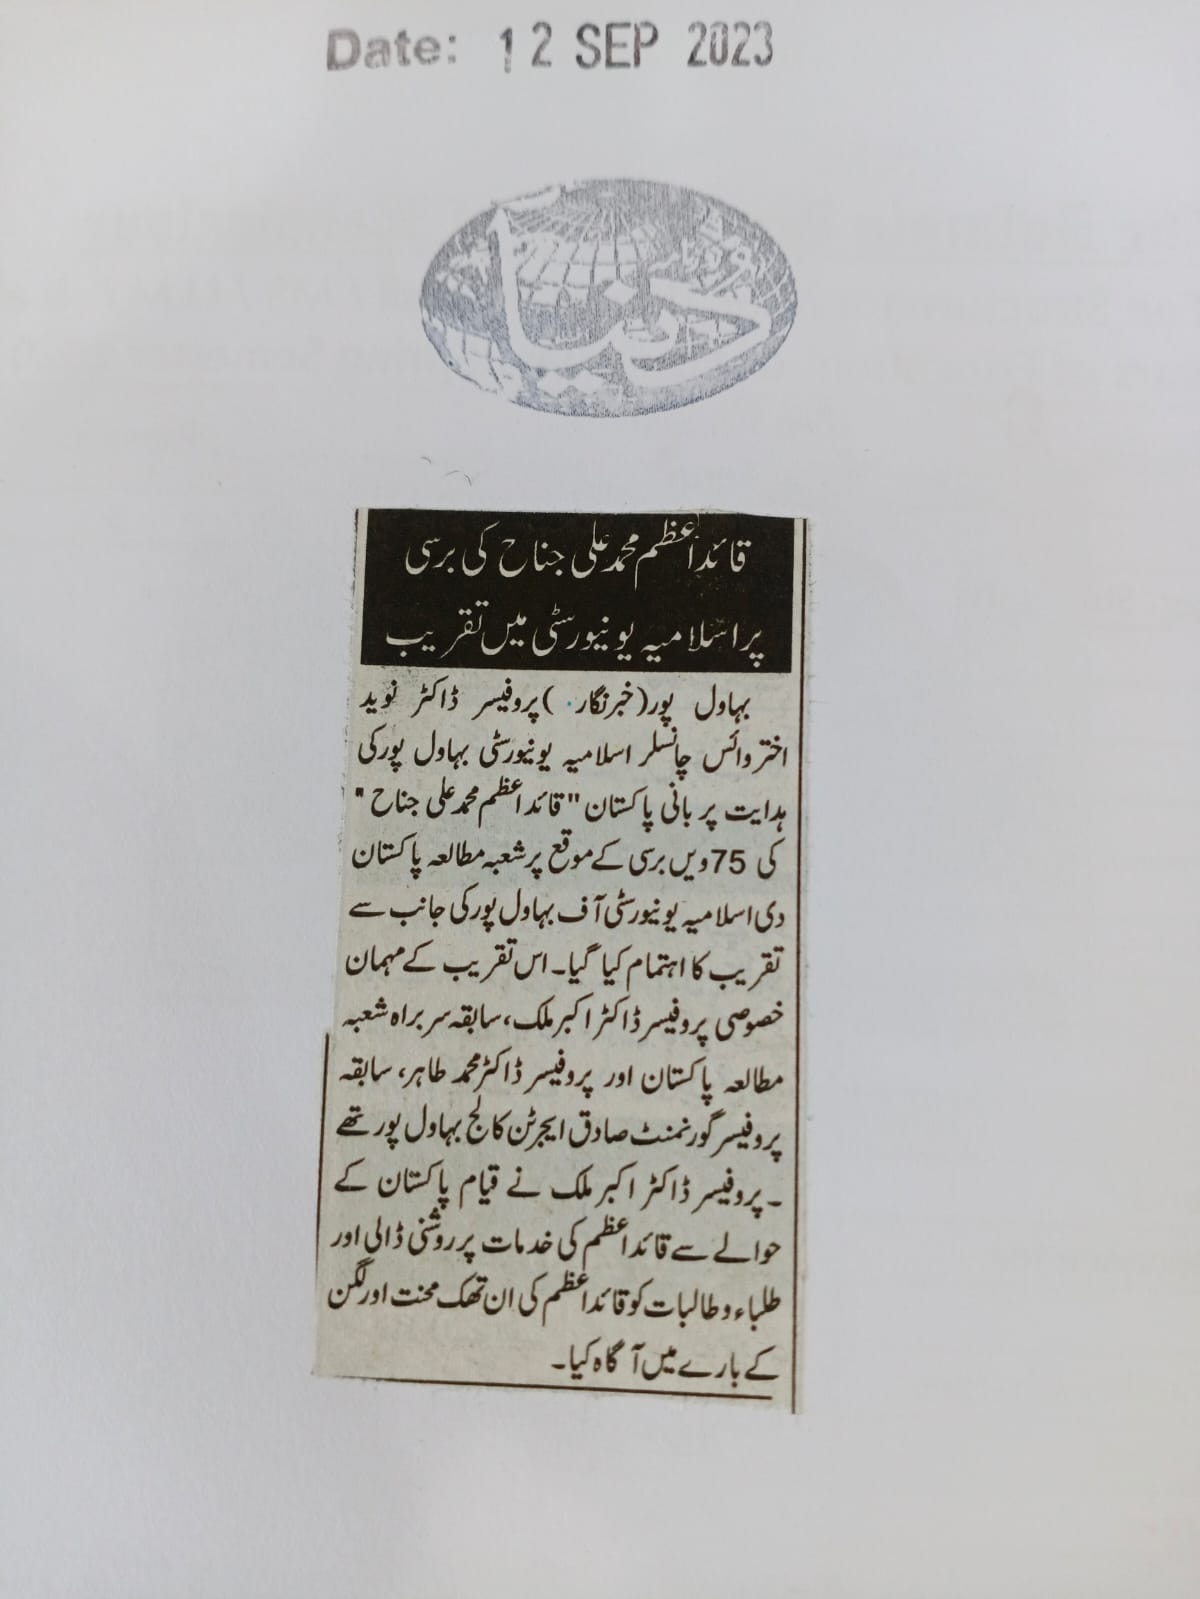 Date: 12 SEP 2023
روزنامہ
دنیا
قائداعظم محمد علی جناح کی برسی
پر اسلامیہ یونیورسٹی میں تقریب
بہاول پور (خبرنگار) پروفیسر ڈاکٹر نوید
اختر وائس چانسلر اسلامیہ یونیورسٹی بہاول پور کی
ہدایت پر بانی پاکستان "قائداعظم محمد علی جناح"
کی 75ویں برسی کے موقع پر شعبہ مطالعہ پاکستان
دی اسلامیہ یونیورسٹی آف بہاول پور کی جانب سے
تقریب کا اہتمام کیا گیا۔ اس تقریب کے مہمان
خصوصی پروفیسر ڈاکٹر اکبر ملک، سابقہ سربراہ شعبہ
مطالعہ پاکستان اور پروفیسر ڈاکٹر محمد طاہر، سابقہ
پروفیسر گورنمنٹ صادق ایجرٹن کالج بہاول پور تھے
۔ پروفیسر ڈاکٹر اکبر ملک نے قیام پاکستان کے
حوالے سے قائداعظم کی خدمات پر روشنی ڈالی اور
طلباء و طالبات کو قائداعظم کی ان تھک محنت اور لگن
کے بارے میں آگاہ کیا۔